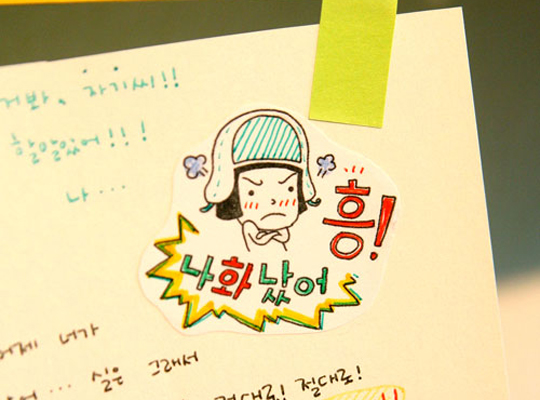 거봐~ 자기씨!!
할말있어!!!
나....
흥!
나 화 났어
어제 너가
... 싫은 그래서
절대로! 절대로!